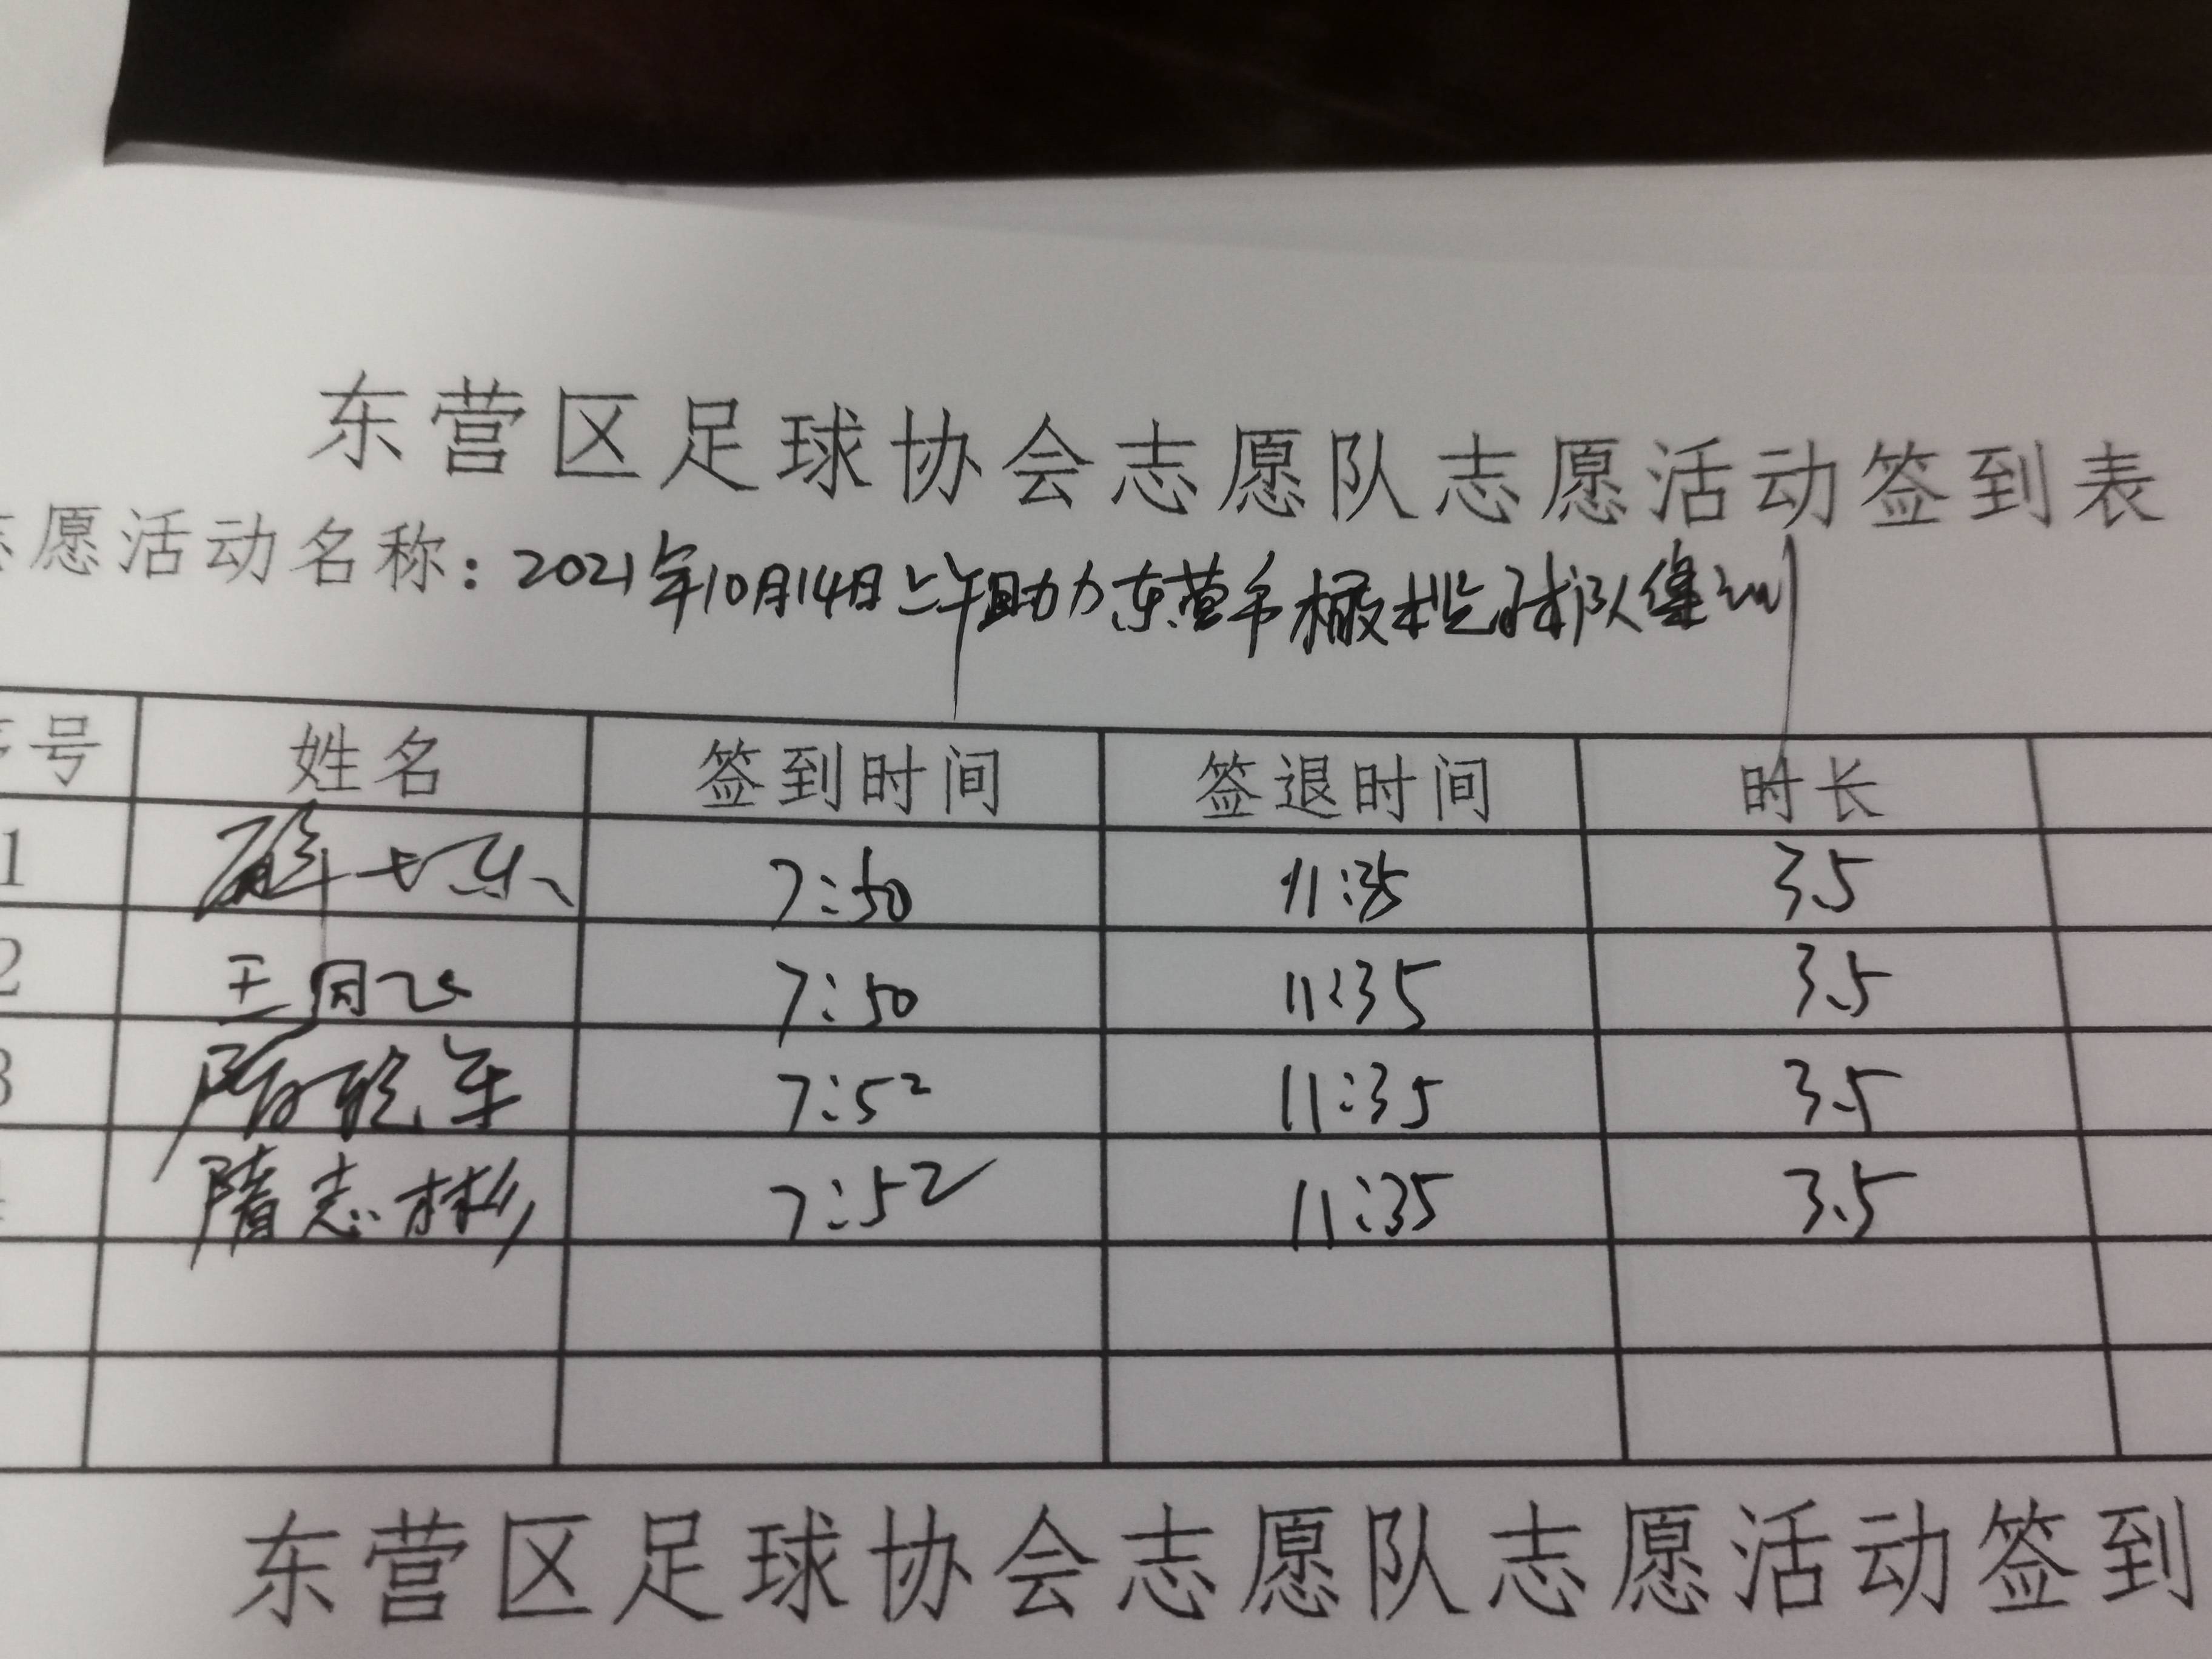 东营区足球协会志愿队志愿活动签到表
愿活动名称：2021年10月14日上午助力东营市橄榄球队集训
号 姓名 签到时间 签退时间 时长
1 7:50 11:35 3.5
2 王月飞 7:50 11:35 3.5
3 7:52 11:35 3.5
隋志彬 7:52 11:35 3.5
东营区足球协会志愿队志愿活动签到